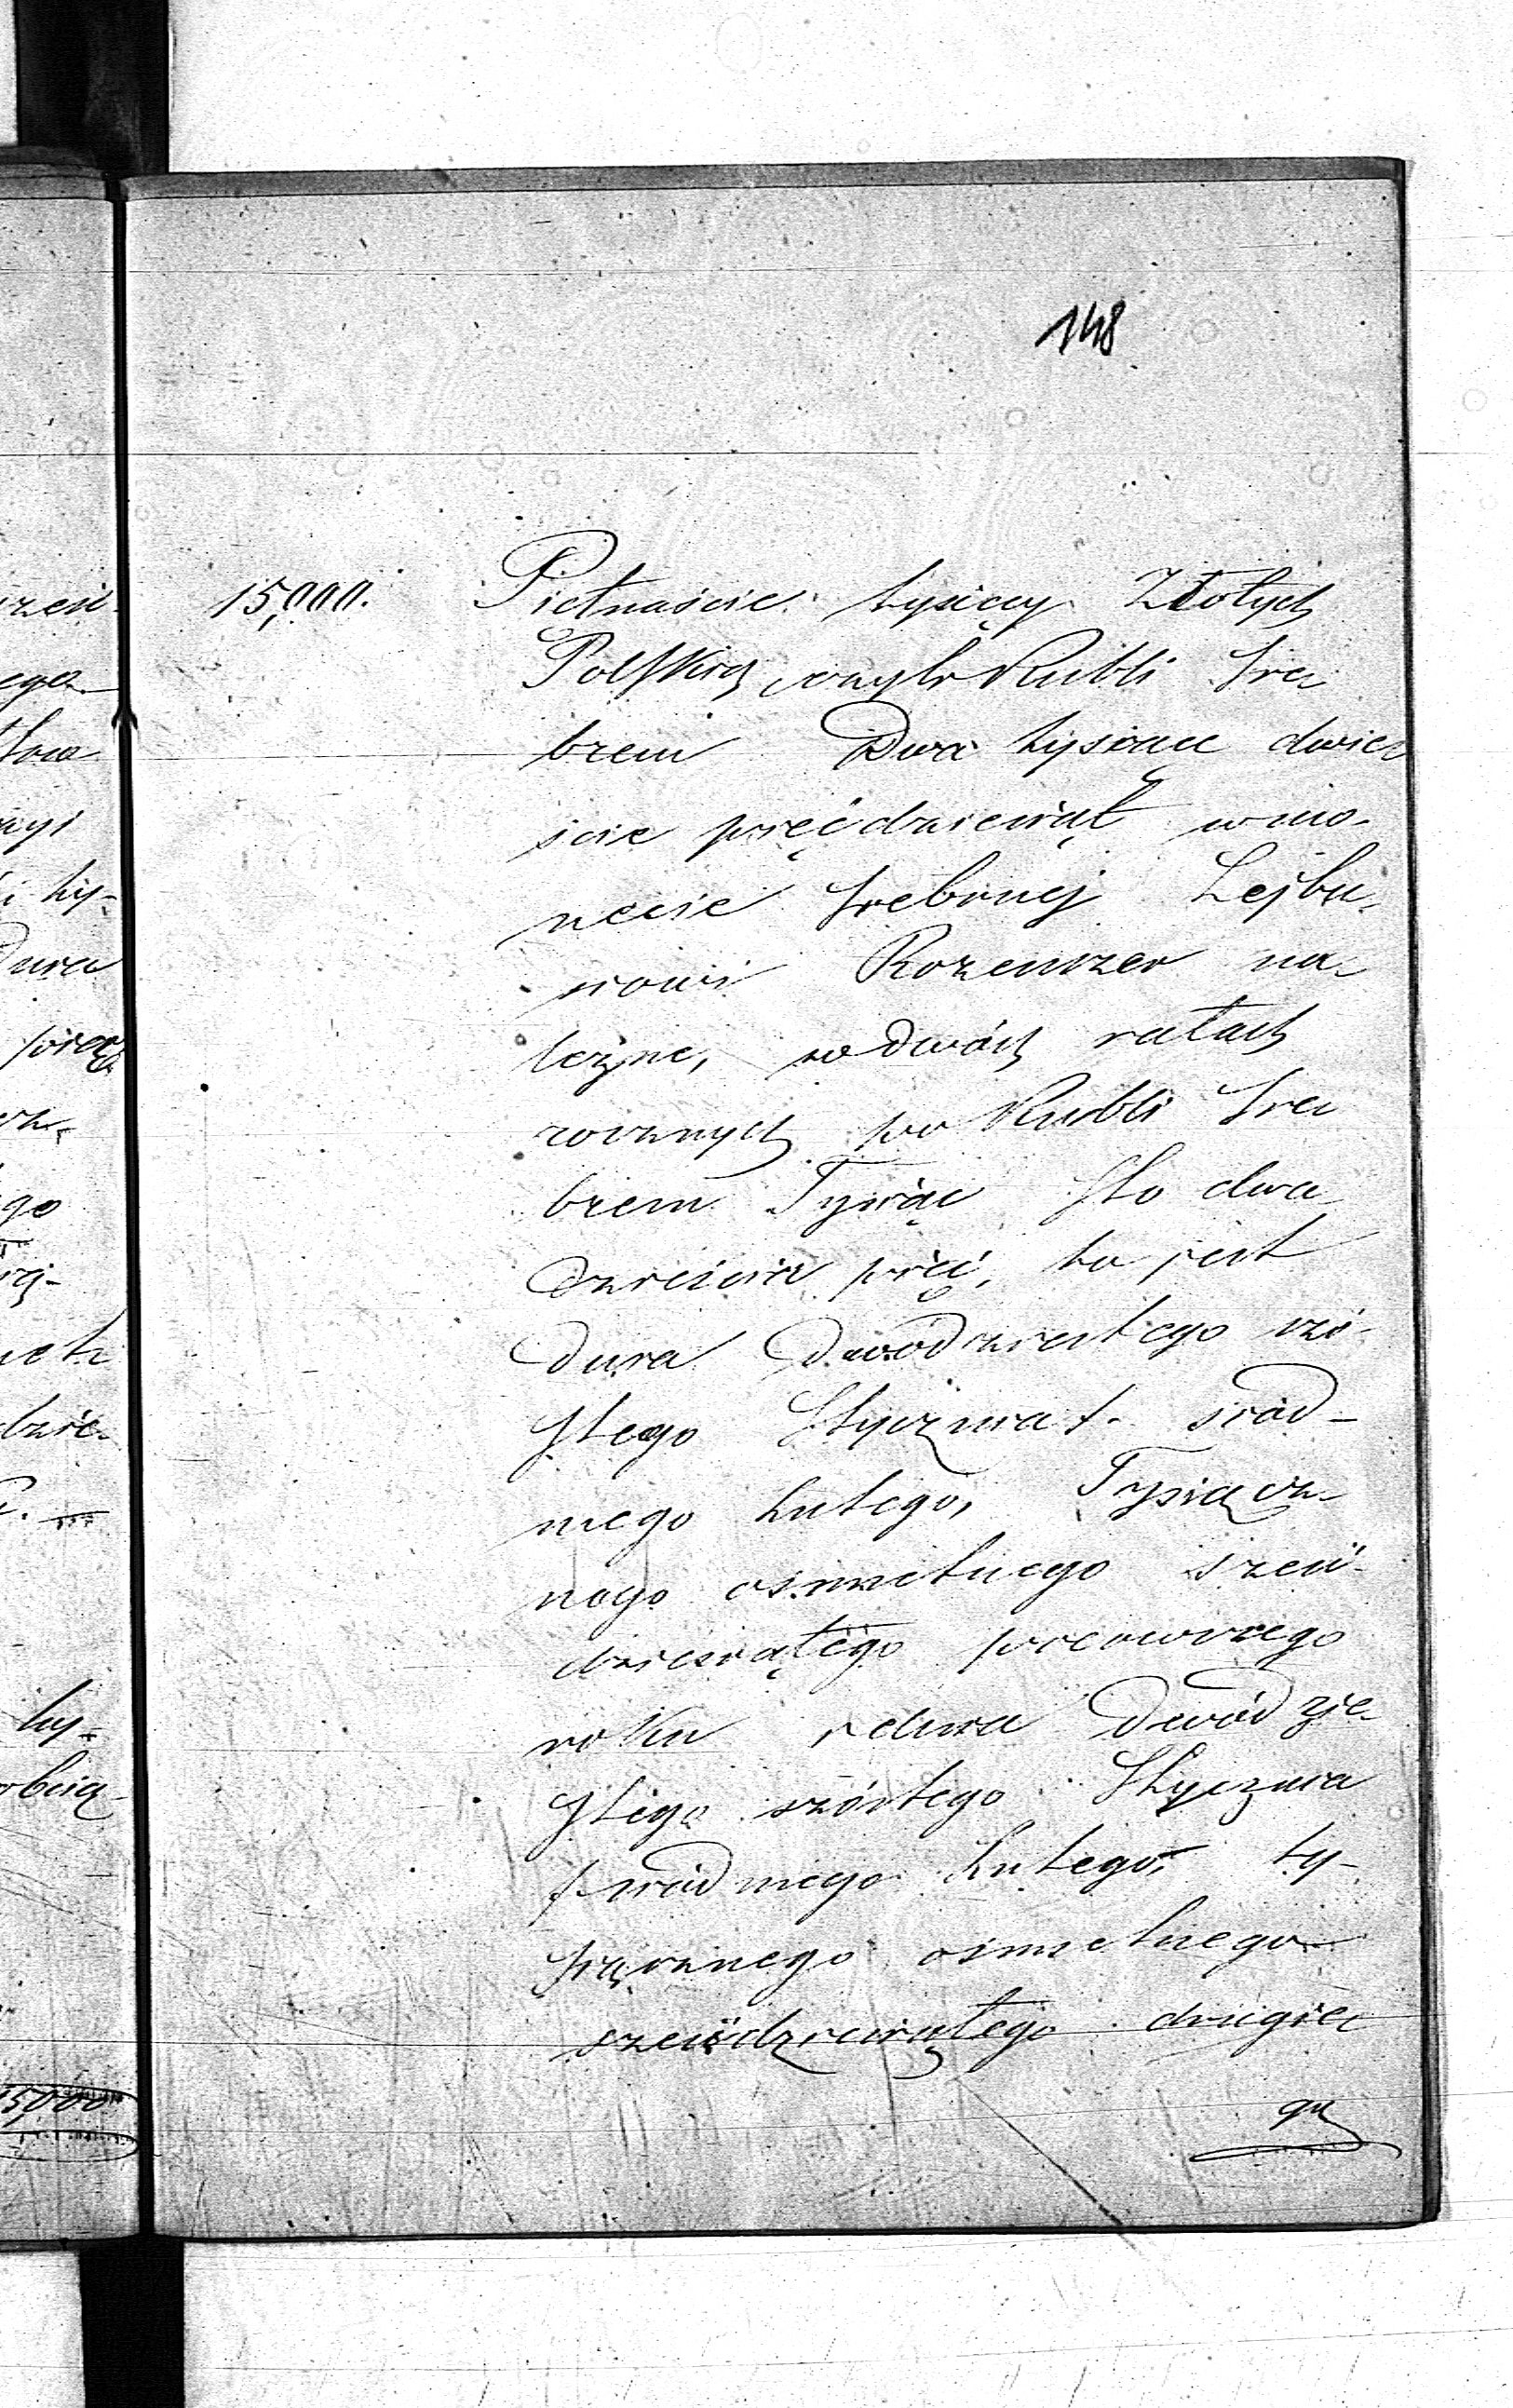 148
15,000. Piętnaście tysięcy Złotych
Polskich czyli Rubli Sre
brem Dwa tysiące dwie
ście pięćdziesiąt w mo-
necie srebrnej Lejbu-
siowi Rozenczer na-
leżne, w dwóch ratach
rocznych po Rubli Sre
brem Tysiąc Sto dwa
dzieścia pięć, to jest
dnia Dwódziestego szó-
stego Stycznia /. siód-
mego Lutego, Tysiącz-
nego osmsetnego sześć-
dziesiątego pierwszego
roku i dnia Dwódzie-
stego szóstego Stycznia
/. siódmego Lutego, ty-
siącznego osmsetnego
sześćdziesiątego drugie